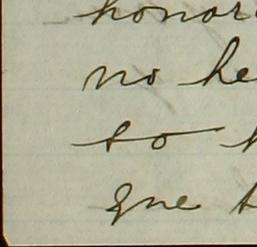 honor
no he
so
que